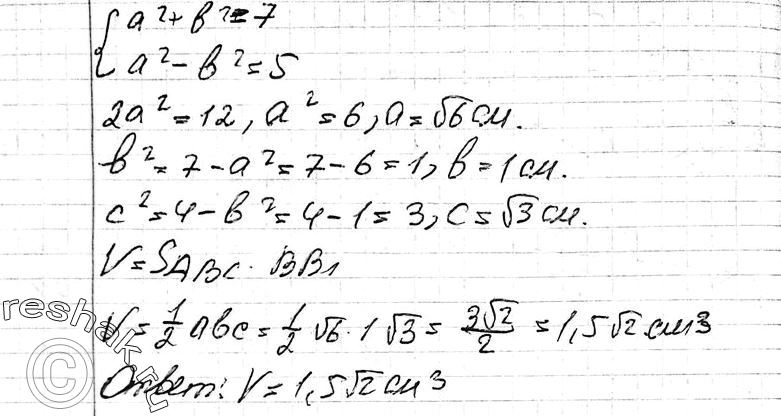 { a² + b² = 7
a² - b² = 5
2a² = 12, a² = 6, a = √6 см.
b² = 7 - a² = 7 - 6 = 1, b = 1 см.
c² = 4 - b² = 4 - 1 = 3, c = √3 см.
V = SABC · BB1
V = 1/2 abc = 1/2 √6 · 1 √3 = 3√2/2 = 1,5√2 см3
Ответ: V = 1,5√2 см3
reshak.ru
©